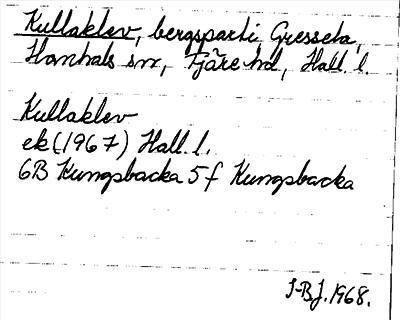 Kullaklev, bergsparti Gresseta,
Hanhals sn, Fjäre hd, Hall. l.
Kullaklev
ek (1967) Hall. l.
6B Kungsbacka 5 f Kungsbacka
I-BJ. 1968.